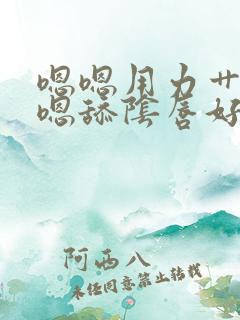 嗯嗯用力艹
嗯舔陰唇好
阿西八
未经同意禁止转载